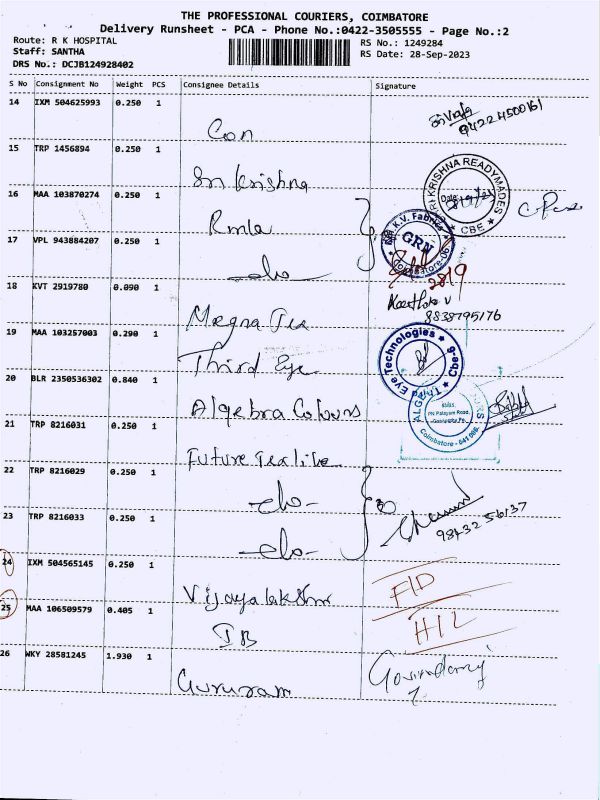 THE PROFESSIONAL COURIERS, COIMBATORE
Delivery Runsheet - PCA - Phone No.:0422-3505555 - Page No.:2
Route: R K HOSPITAL
Staff: SANTHA
DRS No.: DCJB124928402
RS No.: 1249284
RS Date: 28-Sep-2023
S No Consignment No Weight PCS Consignee Details Signature
14 IXM 504625993 0.250 1
Con
15 TRP 1456894 0.250 1
Sri Krishna
SRI KRISHNA READYMADES
★ CBE ★
16 MAA 103870274 0.250 1
K.V. Fabrics
GRN
Coimbatore
17 VPL 943884207 0.250 1
-do-
2819
18 KVT 2919780 0.090 1
8838795176
Megna Tex
19 MAA 103257003 0.290 1
Third Eye
Third Eye Technologies ★ Cbe
20 BLR 2350536302 0.840 1
Algebra Colours
Coimbatore - 641
21 TRP 8216031 0.250 1
Future
22 TRP 8216029 0.250 1
-do-
23 TRP 8216033 0.250 1
-do-
24 IXM 504565145 0.250 1
Vijayalakshmi
F/D
25 MAA 106509579 0.405 1
IB
26 WKY 28581245 1.930 1
Gururam